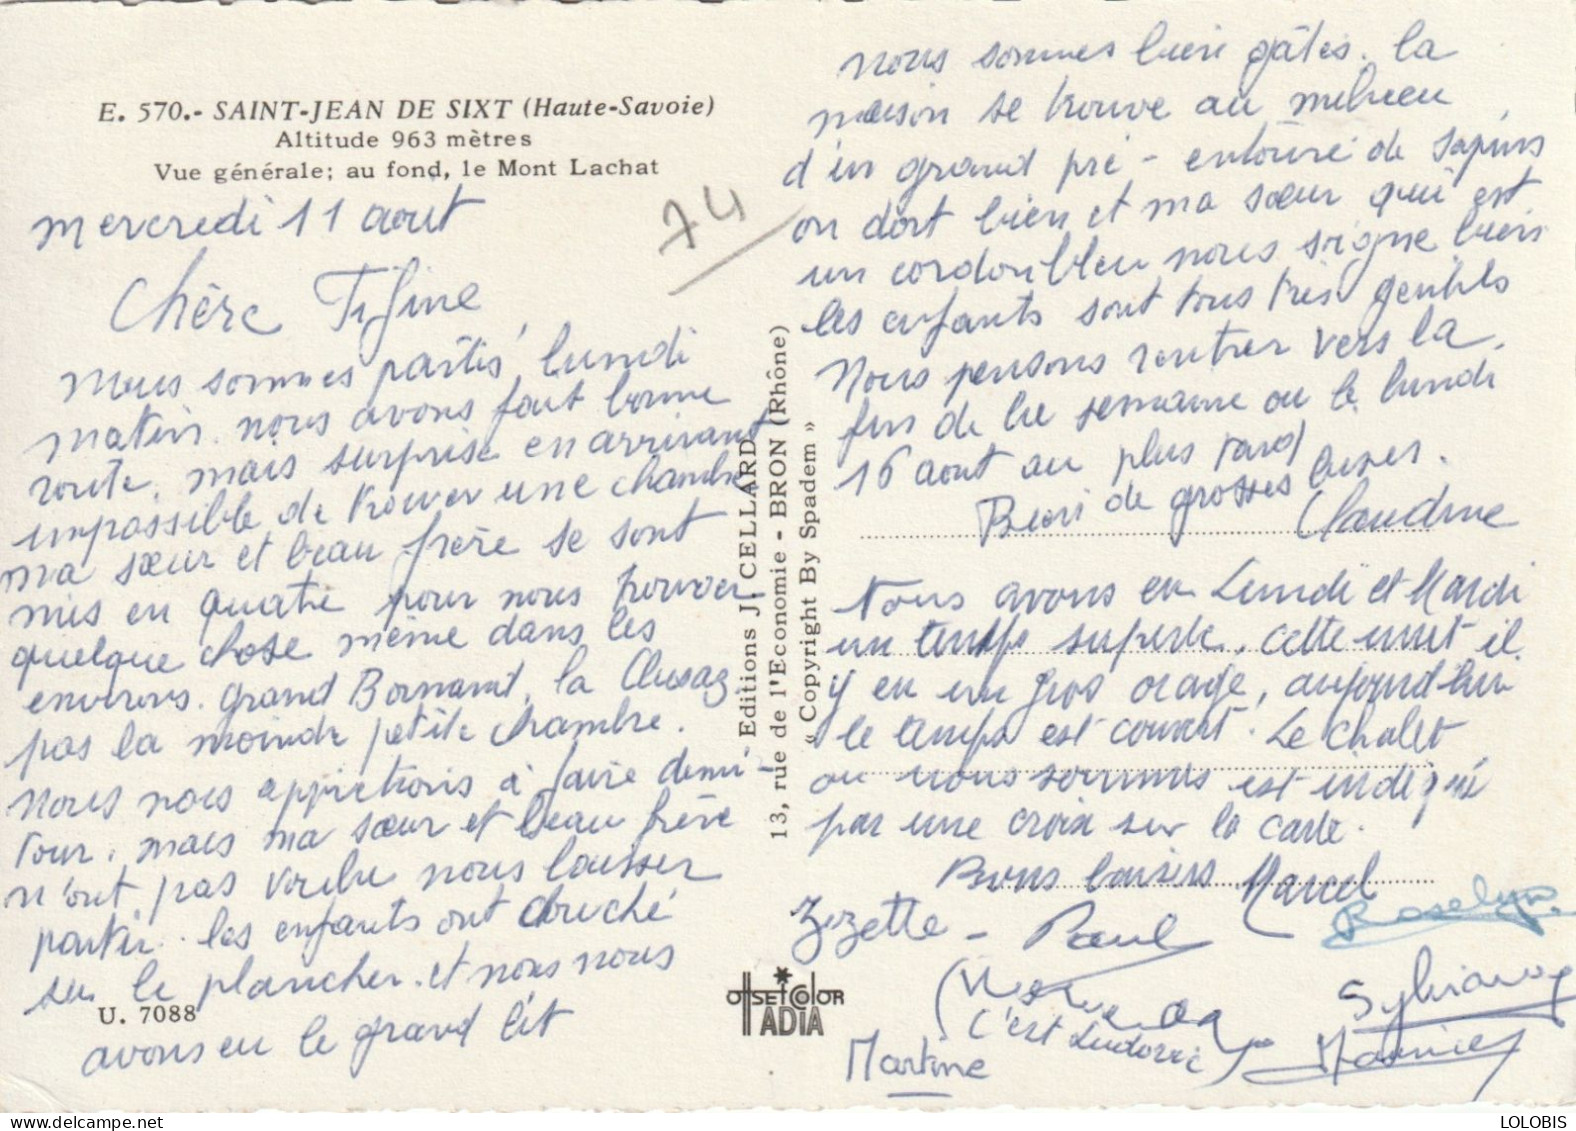 E. 570.- SAINT-JEAN DE SIXT (Haute-Savoie)
Altitude 963 mètres
Vue générale; au fond, le Mont Lachat
74
mercredi 11 aout
Chère Fifine
Nous sommes partis lundi
matin. nous avons fait bonne
route. mais surprise en arrivant
impossible de trouver une chambre
ma sœur et beau frère se sont
mis en quatre pour nous trouver
quelque chose même dans les
environs. grand Bornand, la Clusaz
pas la moindre petite chambre.
Nous nous apprêtions à faire demi-
tour. mais ma sœur et beau frère
n'ont pas voulu nous laisser
partir. les enfants ont couché
sur le plancher. et nous nous
U. 7088
avons eu le grand lit
Editions J. CELLARD
13, rue de l'Economie - BRON (Rhône)
« Copyright By Spadem »
OffSEt COlOR
ADIA
nous sommes bien gâtés. la
maison se trouve au milieu
d'un grand pré - entouré de sapins
on dort bien et ma sœur qui est
un cordonbleu nous soigne bien
les enfants sont tous très gentils
Nous pensons rentrer vers la
fin de la semaine ou le lundi
16 aout au plus tard
Bien de grosses bises.
Claudine
Nous avons eu Lundi et Mardi
un temps superbe. Cette nuit il
y eu un gros orage, aujourd'hui
le temps est couvert. Le chalet
ou nous sommes est indiqué
par une croix sur la carte.
Bons baisers Marcel
Zézette - Paul
Roselyne
Sylviane
c'est Ludovic
Martine